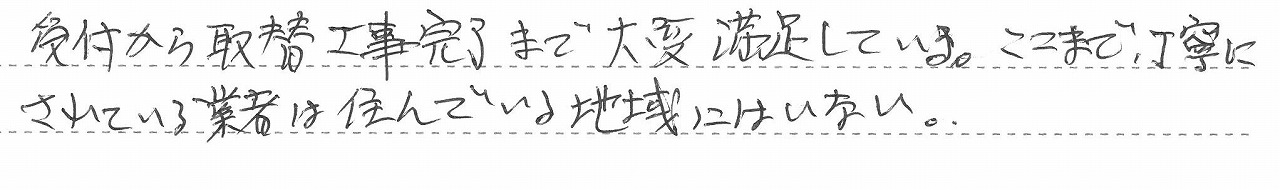 受付から取替工事完了まで大変満足している。ここまで丁寧に
されている業者は住んでいる地域にはいない。